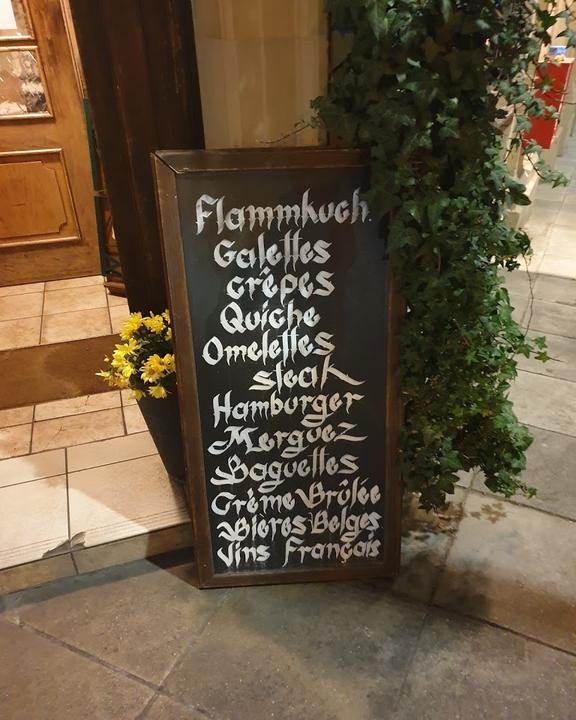 Flammkuch.
Galettes
crêpes
Quiche
Omelettes
steak
Hamburger
Merguez
Baguettes
Crème Brûlée
Bieres Belges
Vins Français